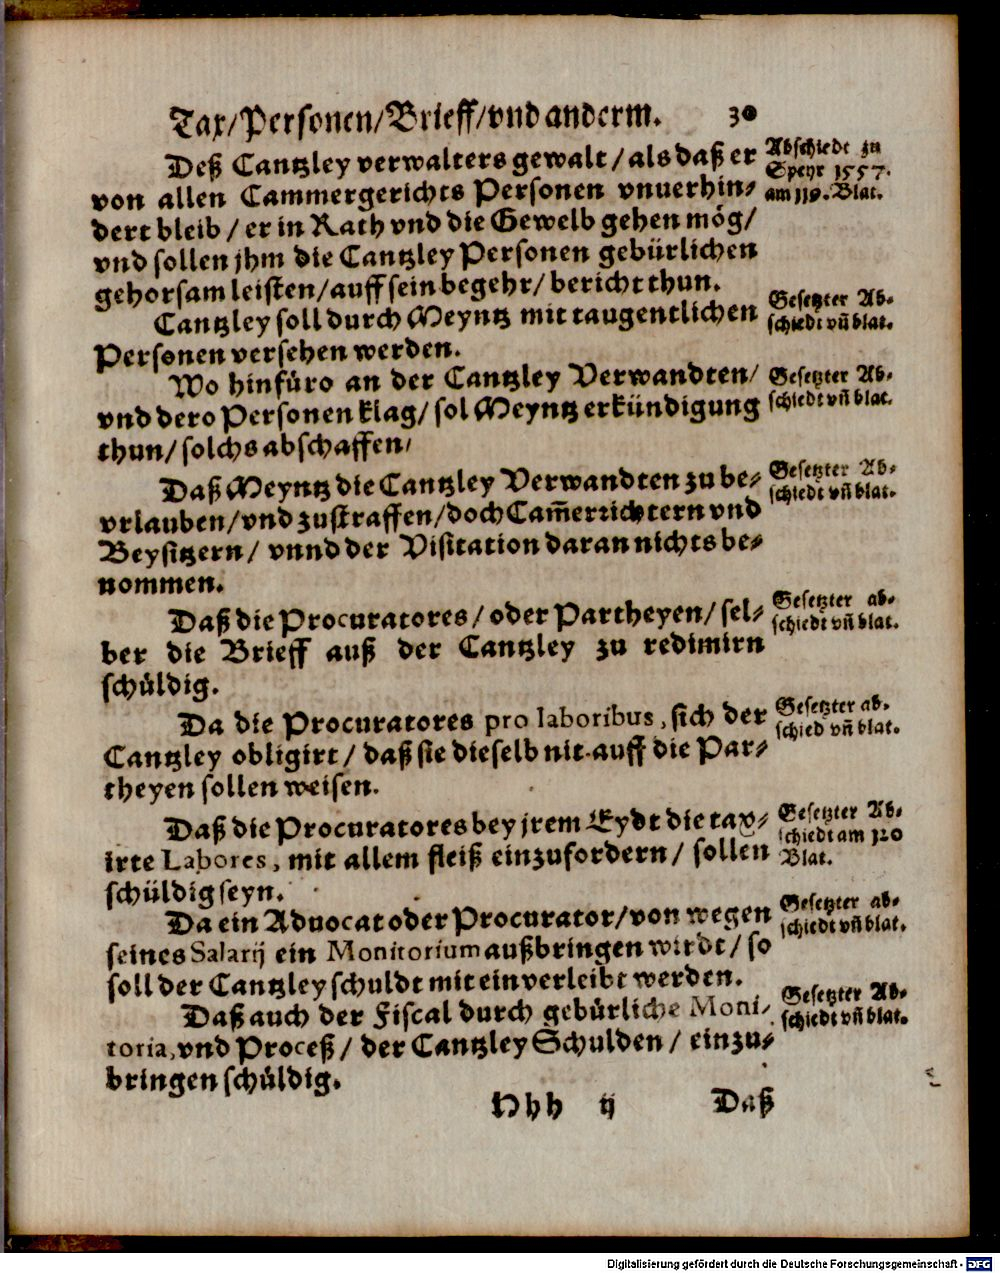 Tax/Personen/Brieff/vnd anderm. 30
Deß Cantzley verwalters gewalt/als daß er
von allen Cammergerichts Personen vnuerhin-
dert bleib/er in Rath vnd die Gewelb gehen mög/
vnd sollen jhm die Cantzley Personen gebürlichen
gehorsam leisten/auff sein begehr/bericht thun.
Abschiedt zu
Speyr 1557.
am 119. Blat.
Cantzley soll durch Meyntz mit taugentlichen
Personen versehen werden.
Gesetzter Ab-
schiedt vñ blat.
Wo hinfüro an der Cantzley Verwandten/
vnd dero Personen klag/sol Meyntz erkündigung
thun/solchs abschaffen/
Gesetzter Ab-
schiedt vñ blat.
Daß Meyntz die Cantzley Verwandten zu be-
vrlauben/vnd zustraffen/doch Cam̃errichtern vnd
Beysitzern/vnnd der Visitation daran nichts be-
nommen.
Gesetzter Ab-
schiedt vñ blat.
Daß die Procuratores/oder Partheyen/sel-
ber die Brieff auß der Cantzley zu redimirn
schüldig.
Gesetzter ab-
schiedt vñ blat.
Da die Procuratores pro laboribus, sich der
Cantzley obligirt/daß sie dieselb nit auff die Par-
theyen sollen weisen.
Gesetzter ab-
schied vñ blat.
Daß die Procuratores bey jrem Eydt die tax-
irte Labores, mit allem fleiß einzufordern/sollen
schüldig seyn.
Gesetzter Ab-
schiedt am 120
Blat.
Da ein Aduocat oder Procurator/von wegen
seines Salarij ein Monitorium außbringen wirdt/so
soll der Cantzley schuldt mit einverleibt werden.
Gesetzter ab-
schiedt vñ blat.
Daß auch der Fiscal durch gebürliche Moni-
toria, vnd Proceß/der Cantzley Schulden/einzu-
bringen schüldig.
Gesetzter Ab-
schiedt vñ blat.
Hhh ij Daß
Digitalisierung gefördert durch die Deutsche Forschungsgemeinschaft - DFG